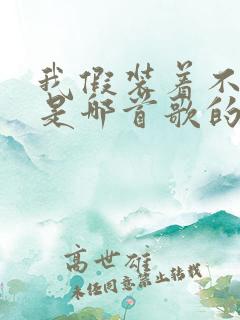 我假装着不
是那首歌的
高世雄
未经同意禁止转载